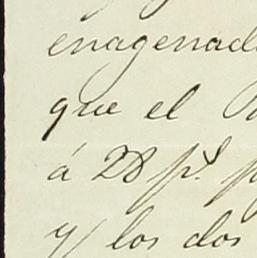 enagenad
que el
á 28 p.s p
y los dos